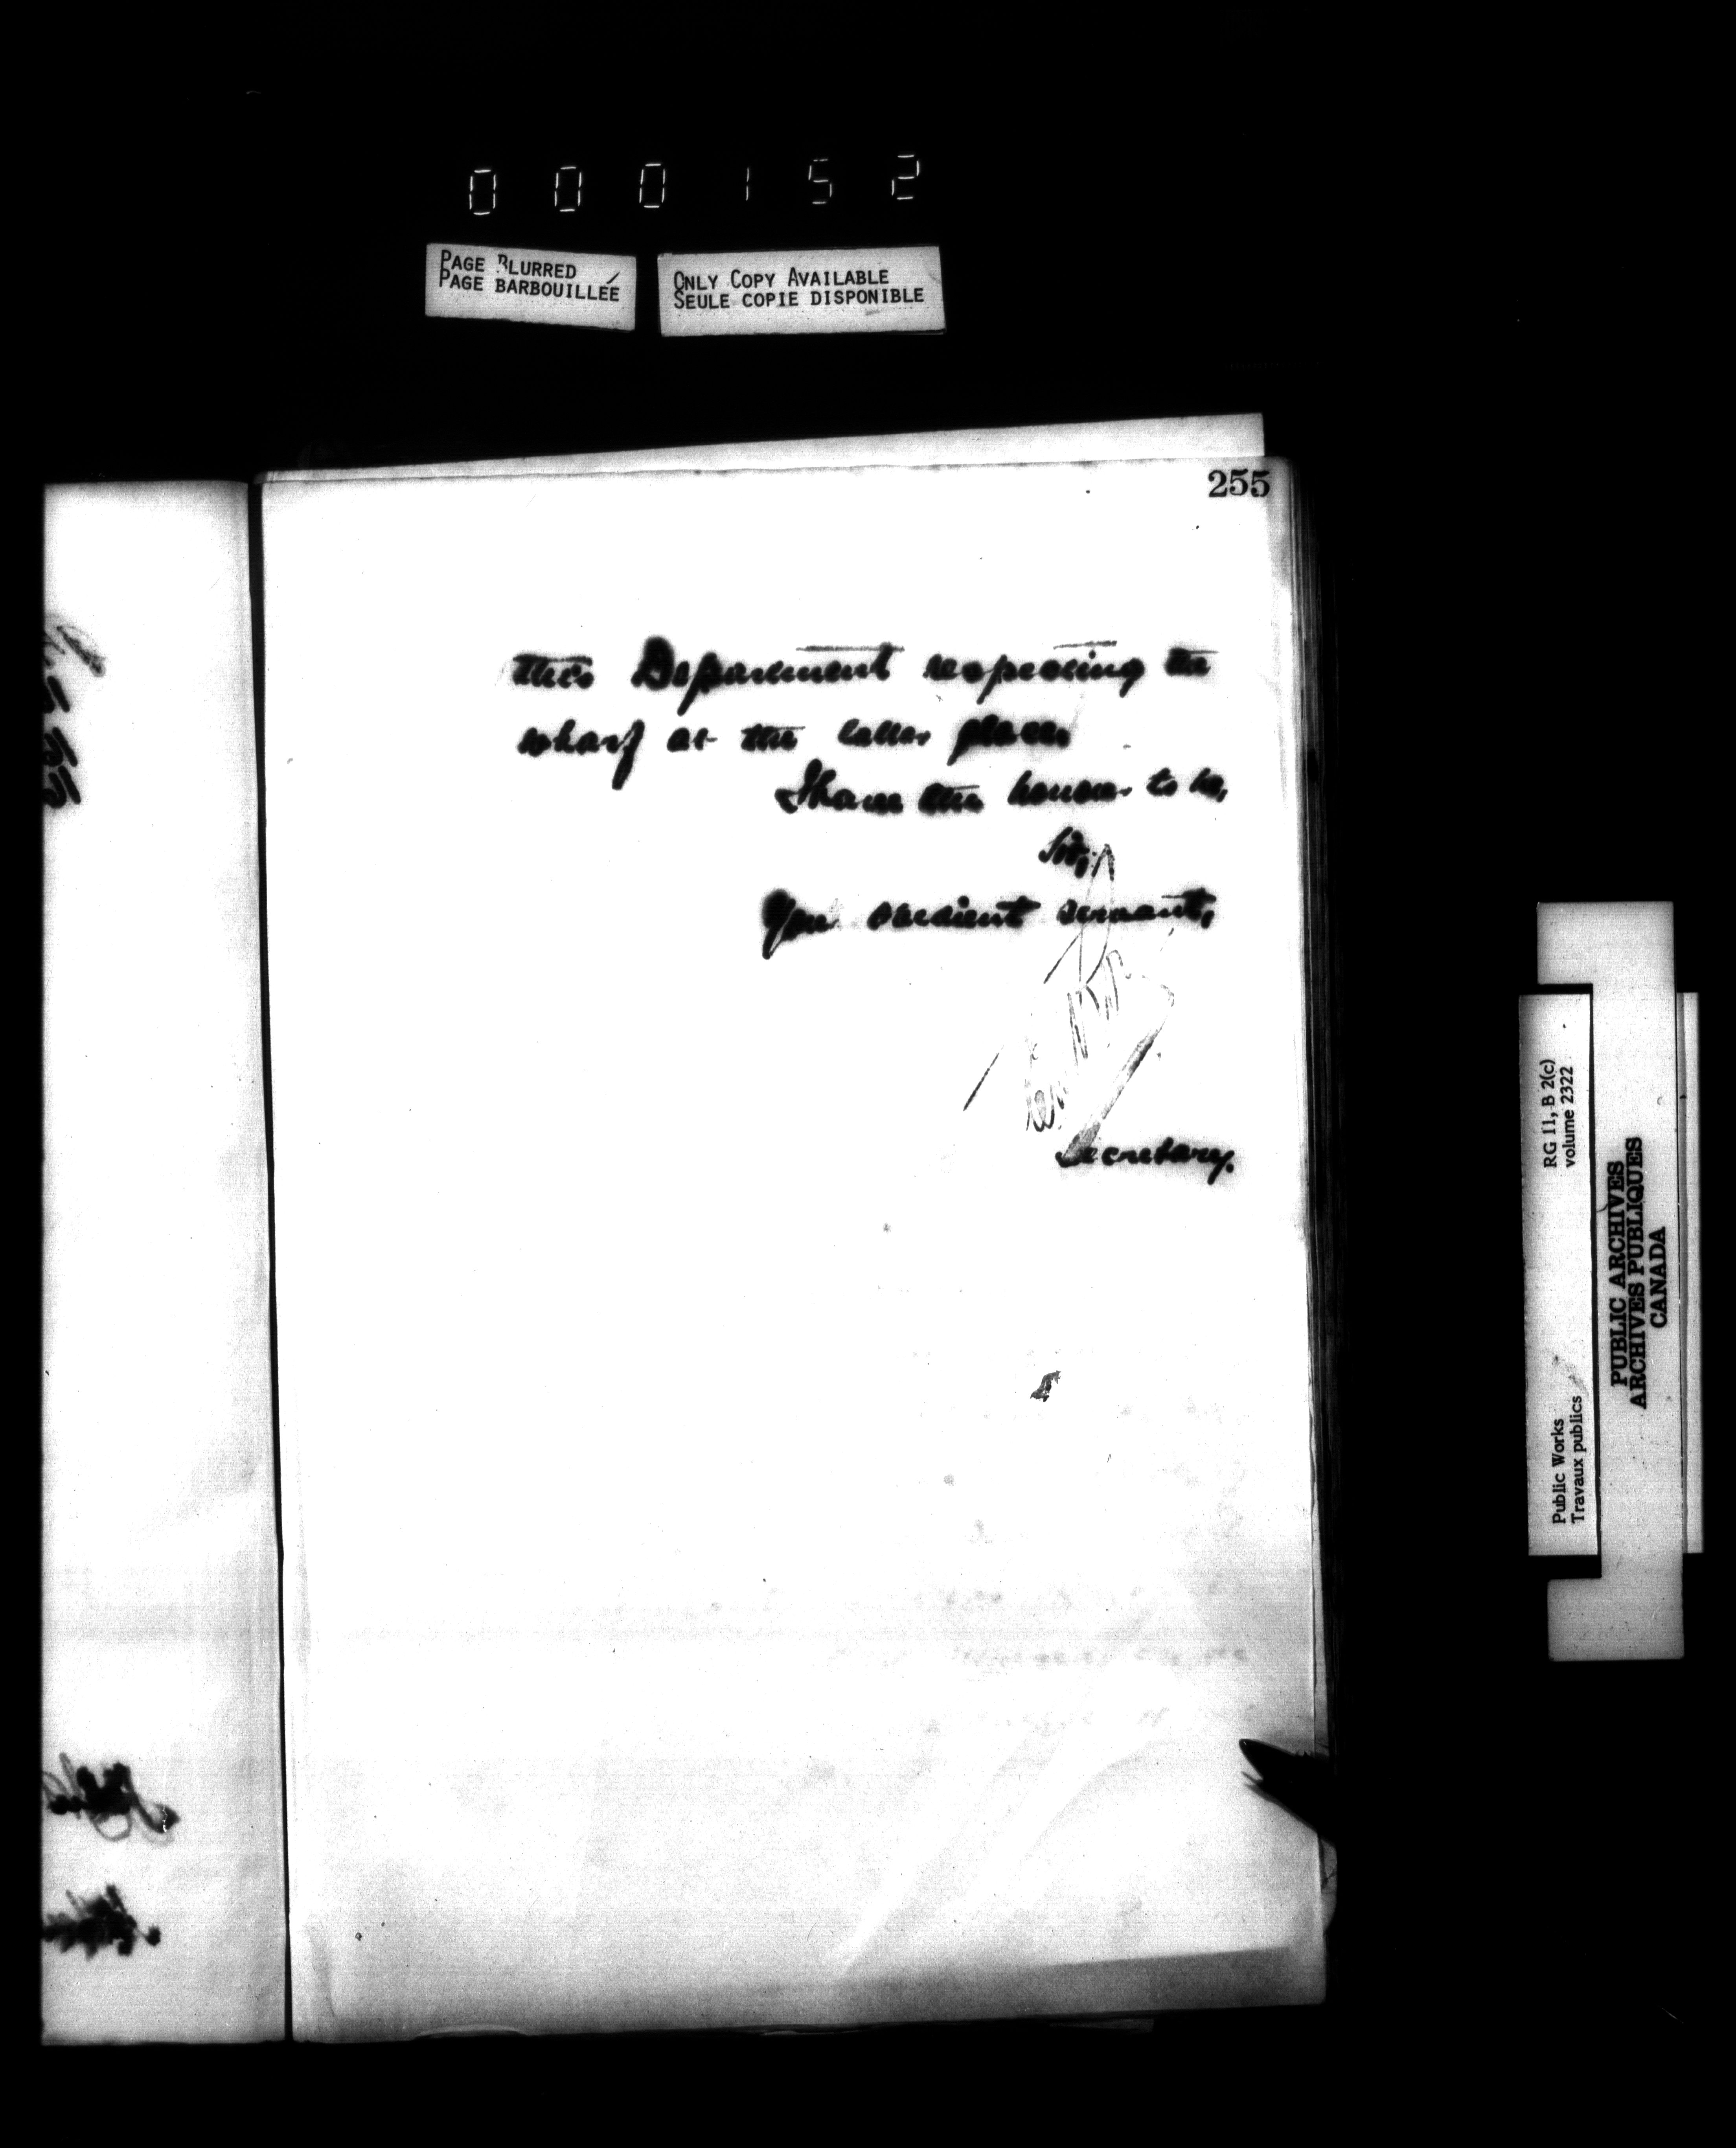 000152
PAGE BLURRED
PAGE BARBOUILLÉE
ONLY COPY AVAILABLE
SEULE COPIE DISPONIBLE
255
this Department respecting the
wharf at the latter place.
I have the honour to be,
Sir,
Your obedient servant,
Secretary.
RG 11, B 2(c)
volume 2322
Public Works
Travaux publics
PUBLIC ARCHIVES
ARCHIVES PUBLIQUES
CANADA